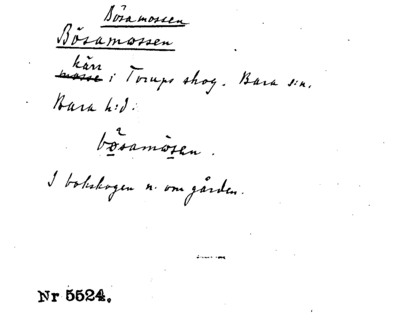 Bösamossen
Bösamossen
kärr
mosse i Torups skog. Bara s:n.
Bara h:d.
bo²samosen.
I bokskogen n. om gården.
Nr 5524.